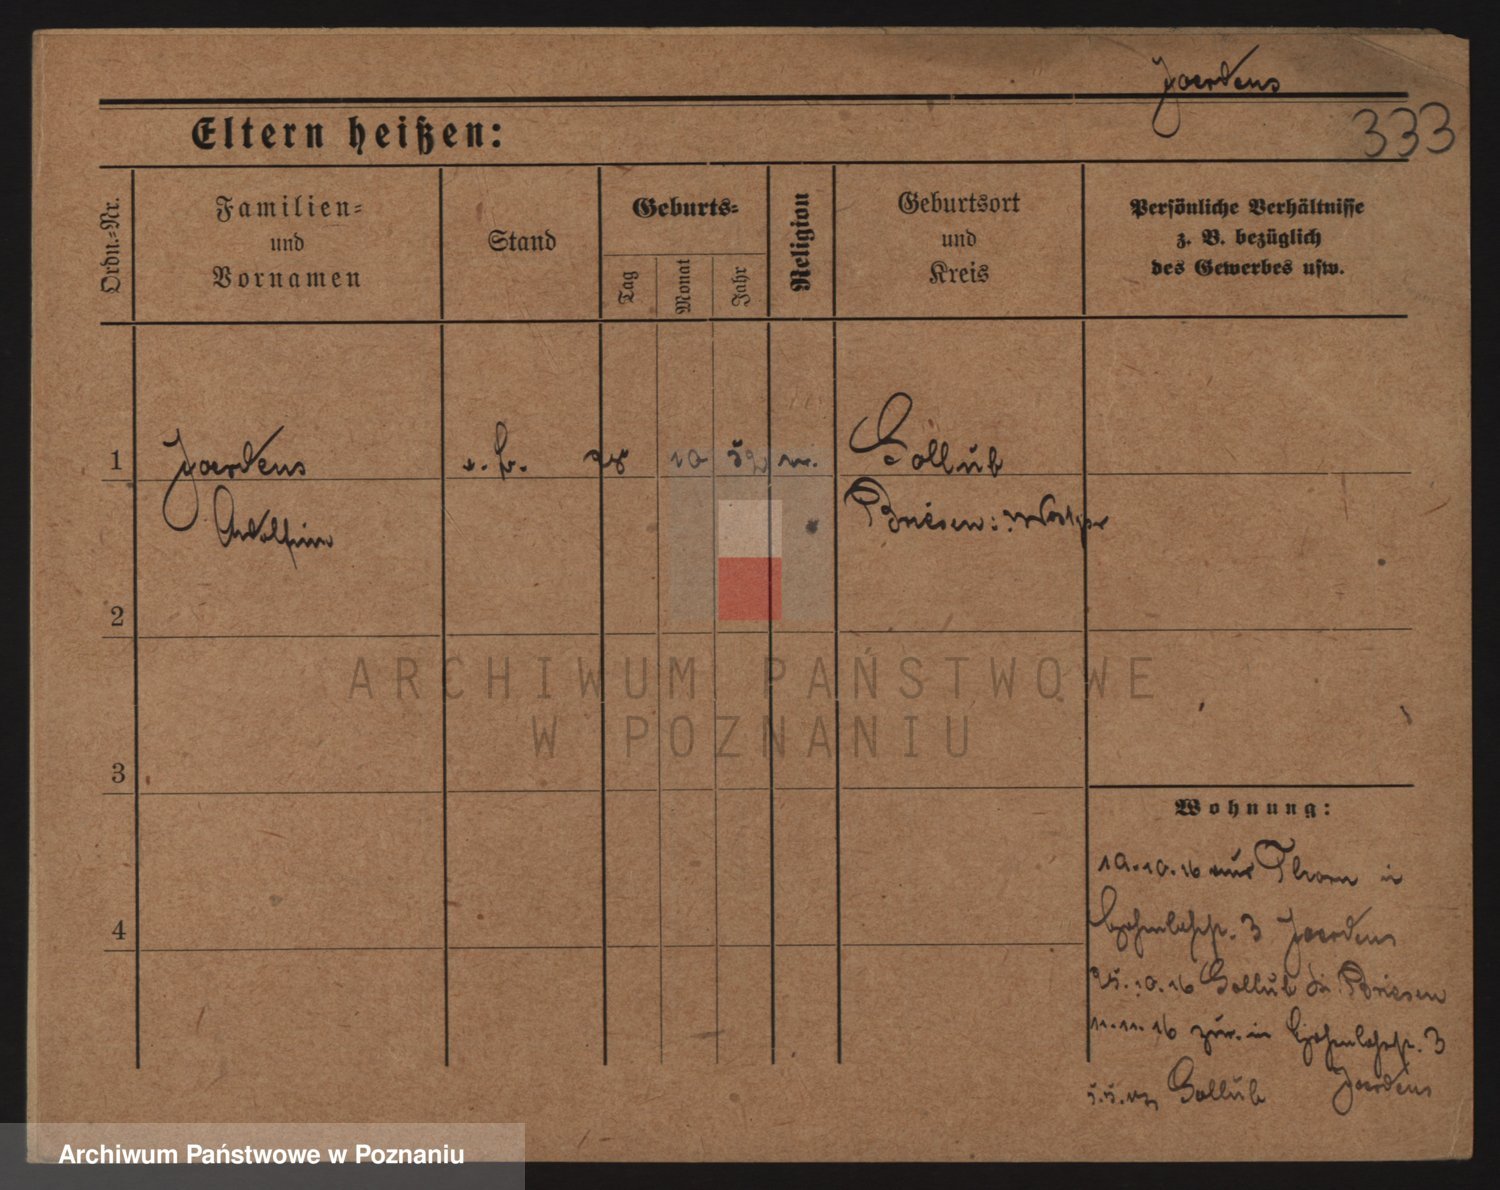 Joerdens
333
Eltern heißen:
Ordn.-Nr.
Familien-
und
Vornamen
Stand
Geburts-
Tag
Monat
Jahr
Religion
Geburtsort
und
Kreis
Persönliche Verhältnisse
z. B. bezüglich
des Gewerbes usw.
1 Joerdens 10 Gollub
Briesen: Westpr
2
3
4
Wohnung:
19.10.16 aus Thorn in
3 Joerdens
25.10.16 Gollub Kr. Briesen
11.11.16 zur. in 3
Joerdens
5.5.17 Gollub
ARCHIWUM PAŃSTWOWE
W POZNANIU
Archiwum Państwowe w Poznaniu